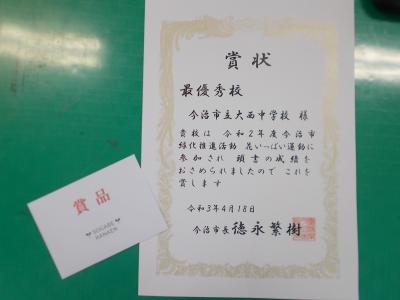 賞状
最優秀校
今治市立大西中学校 様
貴校は 令和2年度今治市
緑化推進活動 花いっぱい運動に
参加され 頭書の成績を
おさめられましたので これを
賞します
令和3年4月18日
今治市長 徳永繁樹
賞品
SOGABE
HANAEN